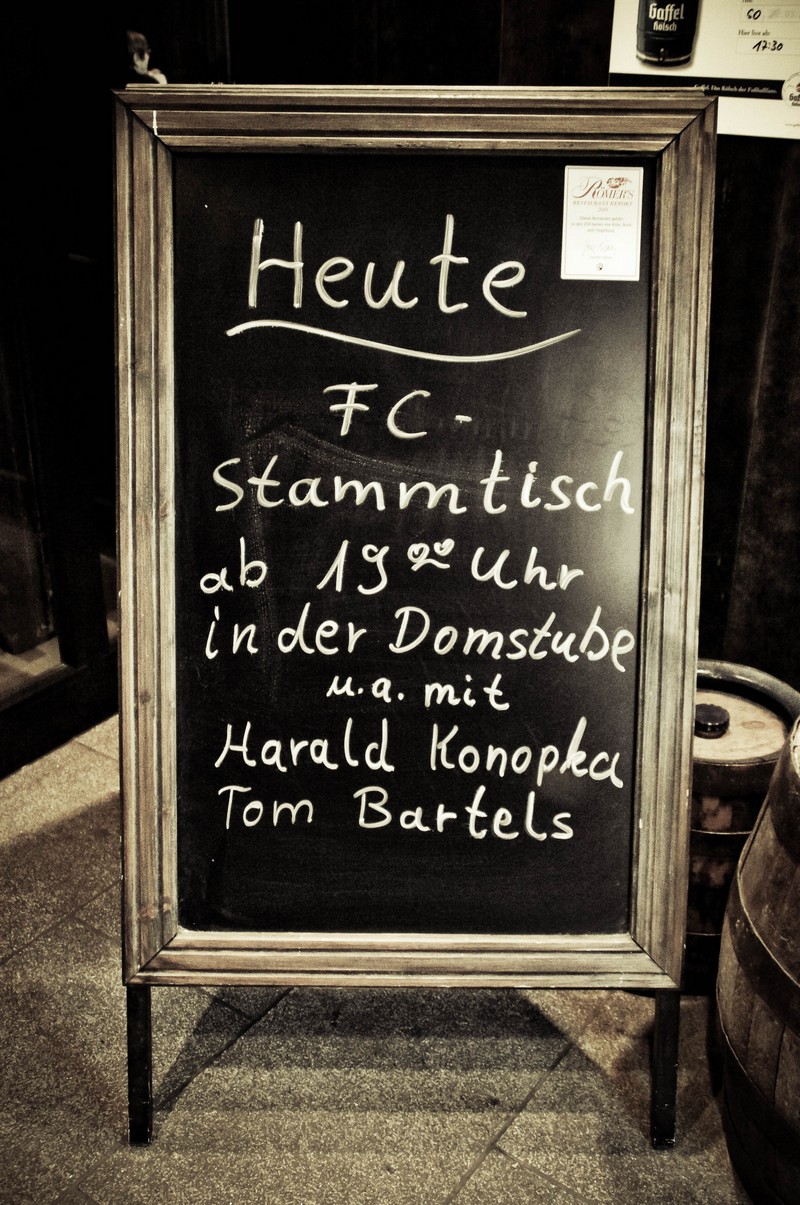 Gaffel
Kölsch
SO
Hier live ab:
17:30
Gaffel. Das Kölsch der Fußballfans.
RÖMER'S
RESTAURANT REPORT
Heute
FC-
Stammtisch
ab 19⁰⁰ Uhr
in der Domstube
u.a. mit
Harald Konopka
Tom Bartels